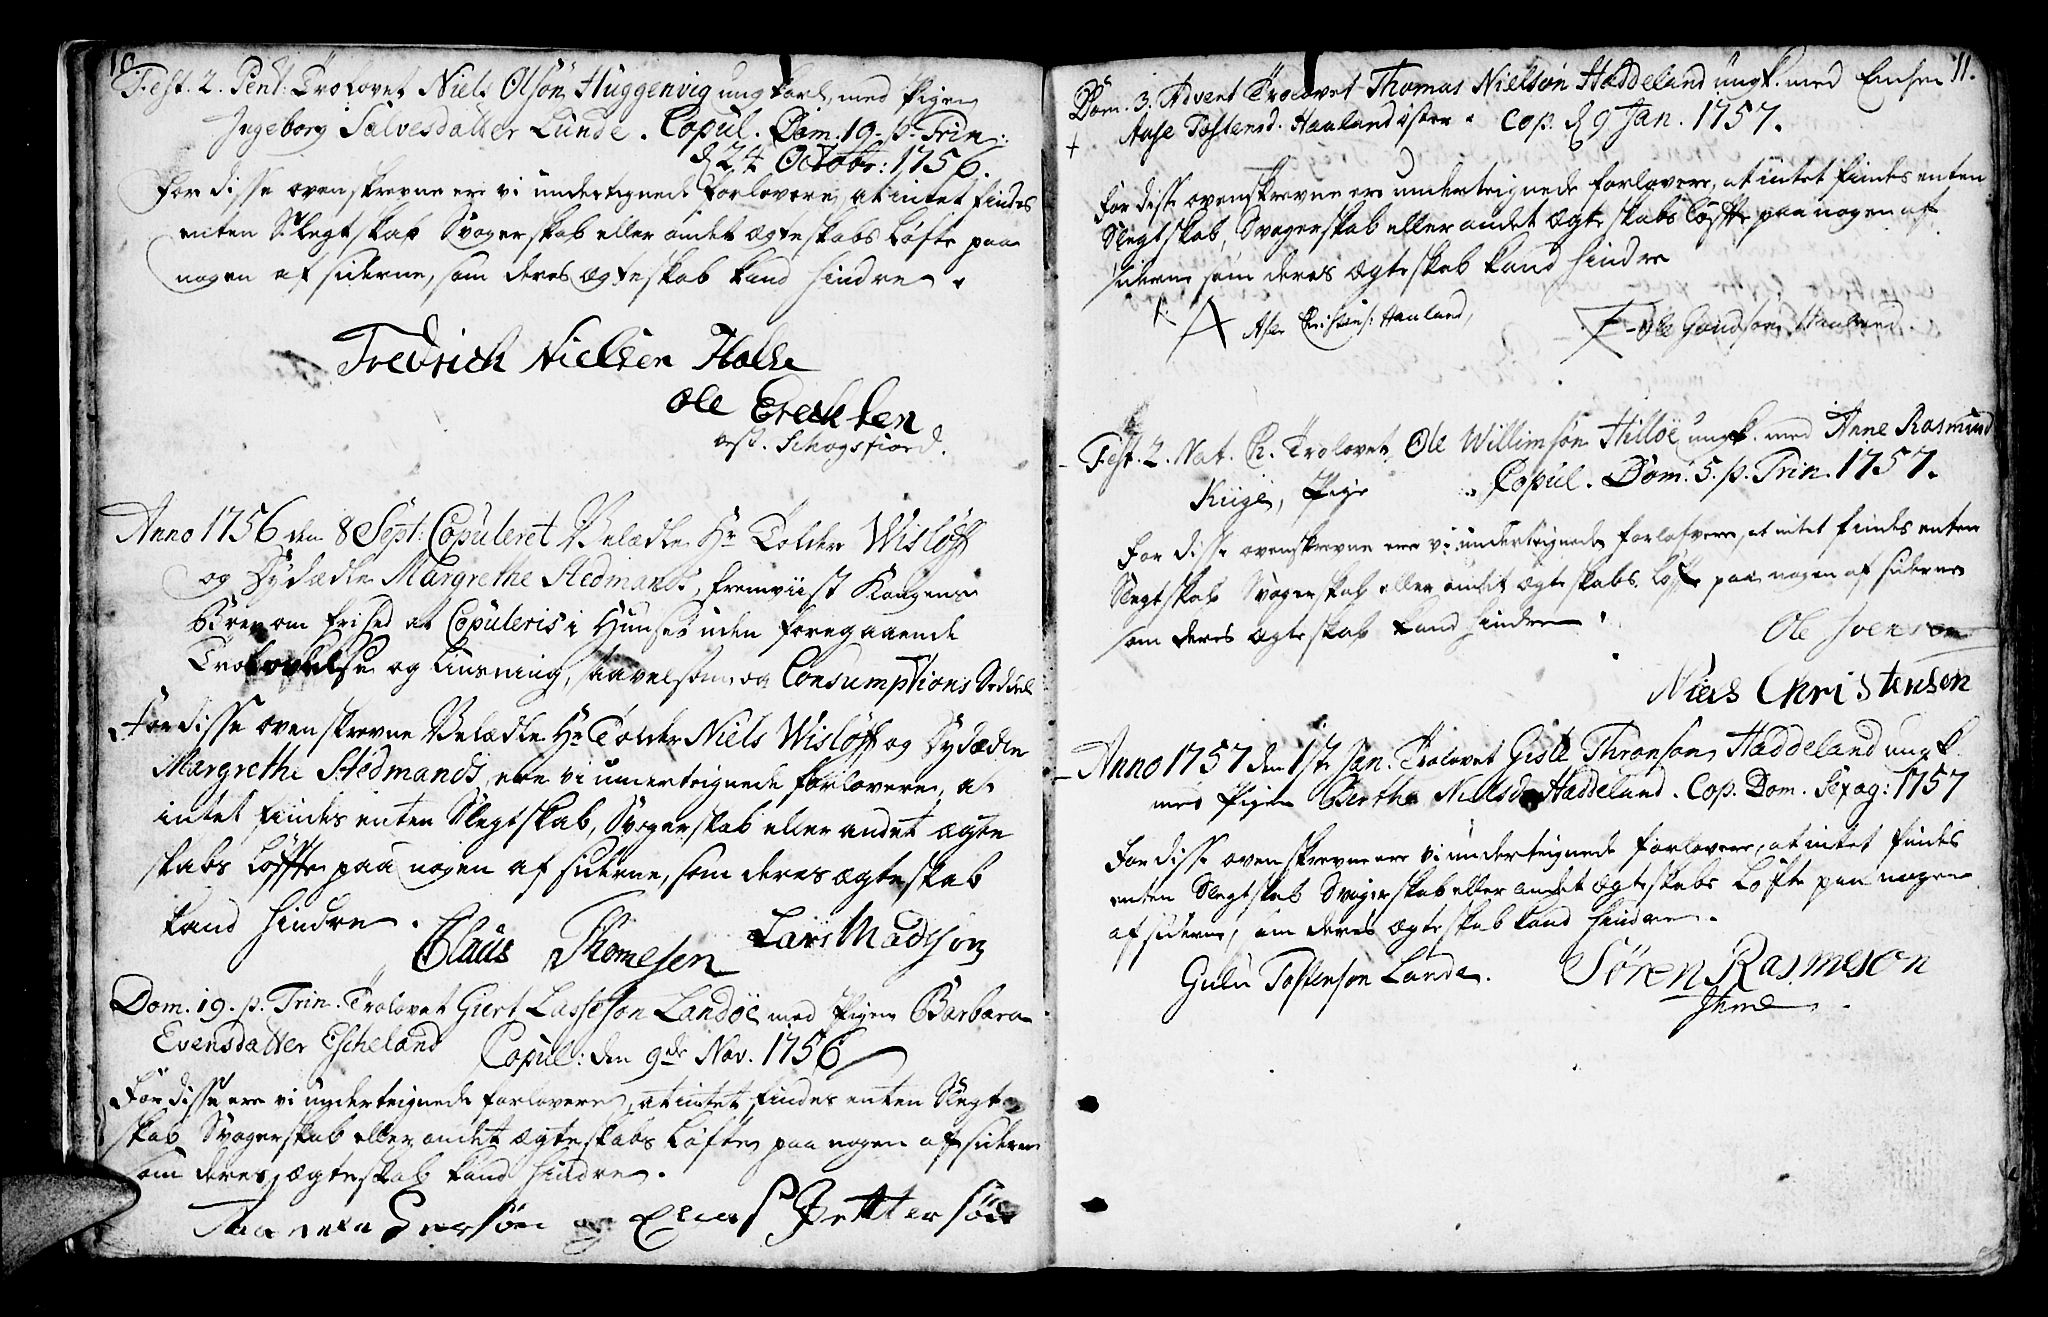 10
Fest. 2. Pent: Trolovet Niels Olsön Huggenvig ungkarl, med Pigen
Ingeborg Salvesdatter Lunde. Copul. Dom. 19. p. Trin:
d 24 Octobr: 1756.
For disse ovenskrevne ere vi undertegnede forlovere, at intet findes
enten Slegtskab Svogerskab eller andet ægteskabs Løfte paa
nogen af siderne, som deres ægteskab kand hindre.
Fredrich Nielsen Holse
Ole Ereksen
Schogsfiord.
Anno 1756 den 8 Sept: Copuleret Velædle Hr Tolder Wisløff
og Dydædle Margrethe Stedmands, fremviist Kongens
Brev om frihed at Copuleris i Huuset uden foregaaende
Trolovelse og Liusning, saavelsom og Consumptions Seddel
For disse ovenskrevne Velædle Hr Tolder Niels Wisløff og Dydædle
Margrethe Stedmands, ere vi undertegnede forlovere, at
intet findes enten Slegtskab, Svogerskab eller andet ægte
skabs Løffte paa nogen af siderne, som deres ægteskab
kand hindre.
Claus Thomesen Lars Madtson
Dom. 19. p. Trin. Trolovet Giert Lasseson Landöe med Pigen Barbara
Evensdatter Escheland Copul: den 9de Nov. 1756
For disse ere vi undertegnede forlovere, at intet findes enten Slegt
skab Svogerskab eller andet ægteskabs Løfte paa nogen af siderne
som deres ægteskab kand hindre.
Pettersön
11.
Dom. 3. Advent Trolovet Thomas Nielsön Haddeland ungk. med Enken
+ Aase Tostensd. Haaland isten. Cop. d 9 Jan. 1757.
For disse ovenskrevne ere undertegnede forlovere, at intet findes enten
Slegtskab, Svogerskab eller andet ægteskabs Løffte paa nogen af
siderne som deres ægteskab kand hindre
Christens: Haaland, Ole Haaland
Fest. 2. Nat. Ch. Trolovet Ole Willimsön Hilløe ungk. med Anne Rasmusd
Kuge, Pige Copul. Dom. 5. p. Trin. 1757.
For disse ovenskrevne ere vi undertegnede forlofvere, at intet findes enten
Slegtskab Svogerskab eller andet ægteskabs Løfte paa nogen af siderne
som deres ægteskab kand hindre.
Ole Svensen
Niels Christensen
Anno 1757 den Jan. Trolovet Gisle Thronson Haddeland ungk
med Pigen Berthe Nielsd. Haddeland. Cop. Dom. Sexag: 1757
For disse ovenskrevne ere vi undertegnede forlovere, at intet findes
enten Slegtskab Svogerskab eller andet ægteskabs Løfte paa nogen
af siderne, som deres ægteskab kand hindre.
Tostenson Lande. Sören Rasmeson